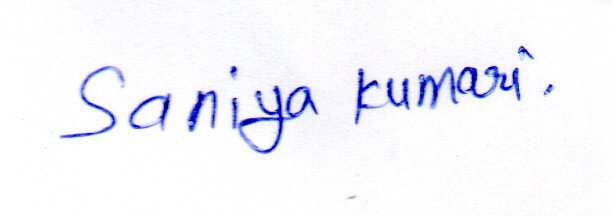 Saniya kumari.